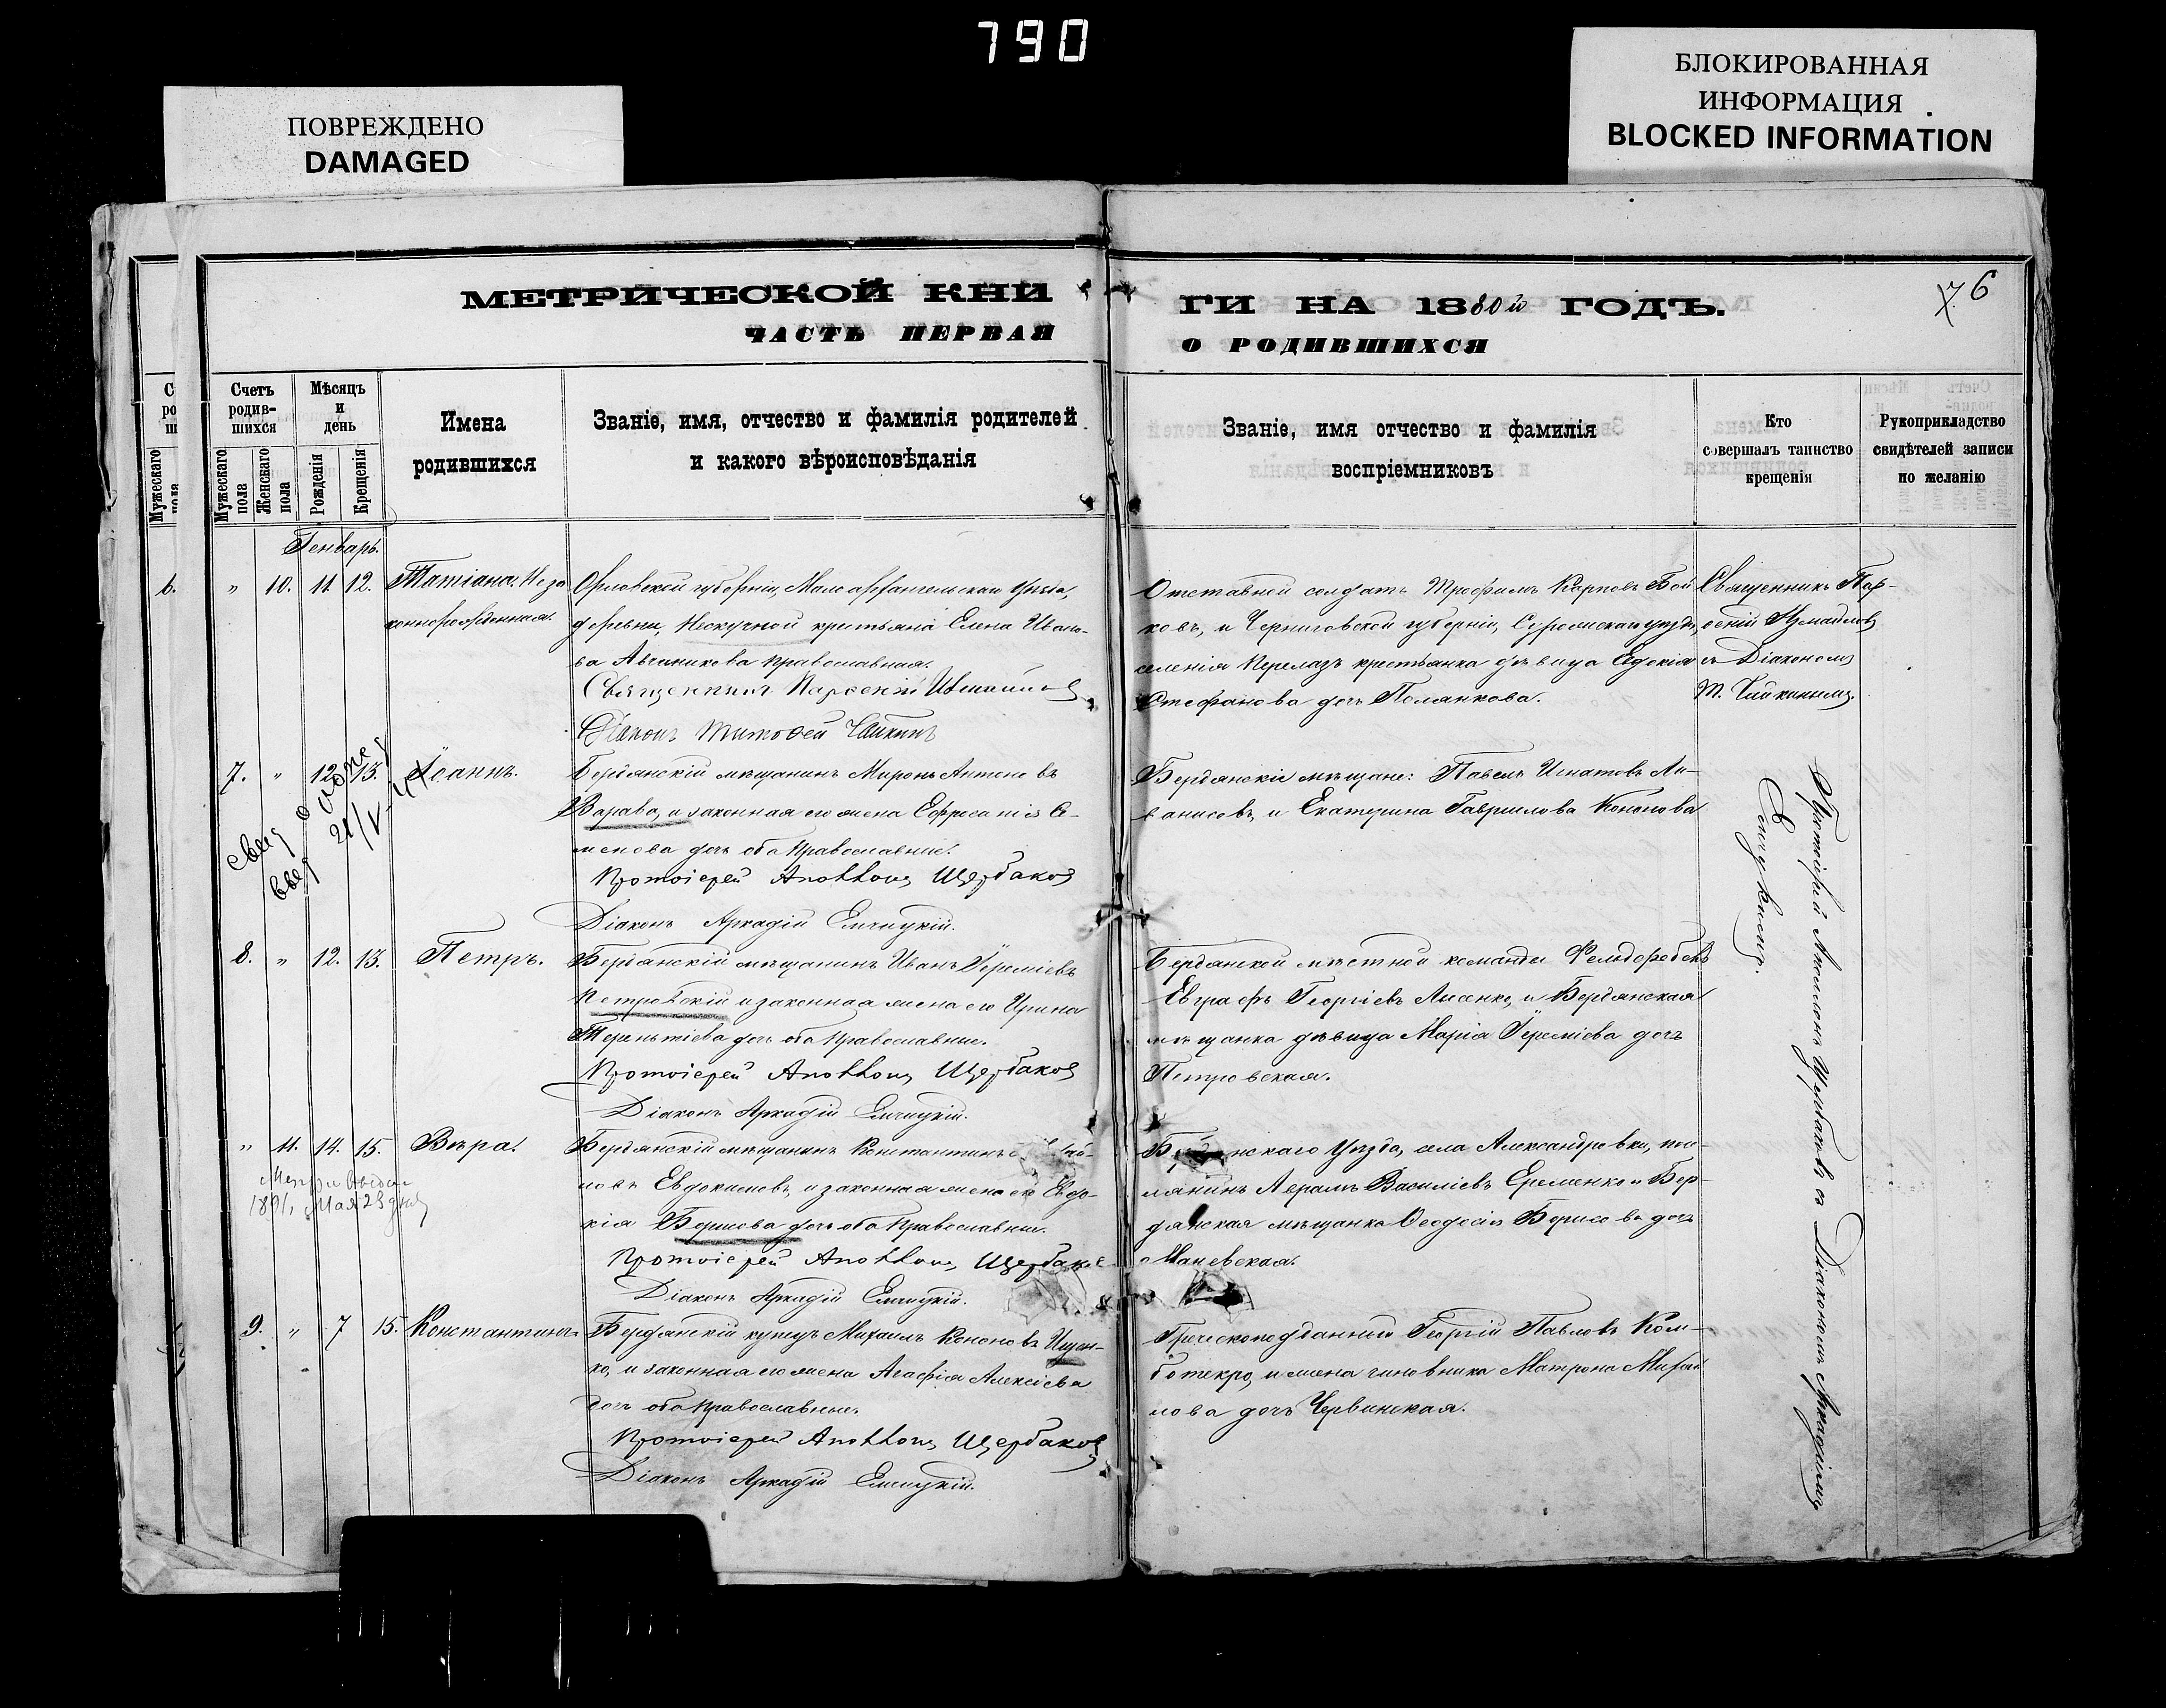 790
ПОВРЕЖДЕНО
DAMAGED
БЛОКИРОВАННАЯ
ИНФОРМАЦИЯ
BLOCKED INFORMATION
МЕТРИЧЕСКОЙ КНИ
ЧАСТЬ ПЕРВАЯ
ГИ НА 1880й ГОДЪ.
О РОДИВШИХСЯ
7. 6
Мужескаго пола
Счетъ родив-
шихся
Мужескаго пола
Женскаго пола
Мѣсяцъ
и
день
Рожденія
Крещенія
Имена
родившихся
Званіе, имя, отчество и фамилія родителей
и какого вѣроисповѣданія
Званіе, имя отчество и фамилія
воспріемниковъ
Кто
совершалъ таинство
крещенія
Рукоприкладство
свидѣтелей записи
по желанію
Генварь.
6.
" 10. 11. 12. Татіана. Неза
коннорожденная.
Орловской губерніи, Малоархангельскаго Уѣзда,
деревни, Нескучной крестьяна Елена Ивано-
ва Авчиникова православная.
Священникъ Парѳеній Измаиловъ
Діаконъ Тимоѳей Чайкинъ
Отставной солдатъ Трофимъ Карповъ Бой
ковъ, и Черниговской губерніи, Суражскаго уѣзда,
селенія Перелазъ крестьянка дѣвица Евдокія
Стефанова дочь Полянкова.
Священникъ Пар-
ѳеній Измаиловъ
съ Діакономъ
Т. Чайкинымъ.
7. " 12. 13. Іоаннъ.
21/V-
Бердянскій мѣщанинъ Миронъ Антоновъ
Варава, и законная его жена Ефросинія Се-
менова дочь оба Православные.
Протоіерей Аполлонъ Щербаковъ
Діаконъ Аркадій Елчицкій.
Бердянскіе мѣщане: Павелъ Игнатовъ Ли-
ванисовъ, и Екатерина Гаврилова Кононова
8. " 12. 13. Петръ.
Бердянскій мѣщанинъ Иванъ Іереміевъ
Петровскій и законная жена его Ирина
Терентіева дочь оба Православные.
Протоіерей Аполлонъ Щербаковъ
Діаконъ Аркадій Елчицкій.
Бердянской мѣстной команды Фельдфебель
Евграфъ Георгіевъ Лисенко, и Бердянская
мѣщанка дѣвица Марія Іереміева дочь
Петровская.
Протоіерей Аполлонъ Щербаковъ съ Діакономъ Аркадіемъ
" 11. 14. 15. Вѣра.
1891, Мая 23 дня
Бердянскій мѣщанинъ Константинъ
ловъ Евдокимовъ, и законная жена его Евдо-
кія Борисова дочь оба Православные.
Протоіерей Аполлонъ Щербаковъ
Діаконъ Аркадій Елчицкій.
Бердянскаго Уѣзда, села Александровки, по-
лянинъ Аврамъ Василіевъ Еременко и Бер-
дянская мѣщанка Ѳеодосія Борисова дочь
Маневская.
9. " 7 15. Константинъ.
Бердянскій купецъ Михаилъ Кононовъ Ищен-
ко, и законная его жена Агафія Алексіева
дочь оба Православные.
Протоіерей Аполлонъ Щербаковъ
Діаконъ Аркадій Елчицкій.
Греческоподданный Георгій Павловъ Ком-
ботекро, и жена чиновника Матрона Михаи
лова дочь Червинская.